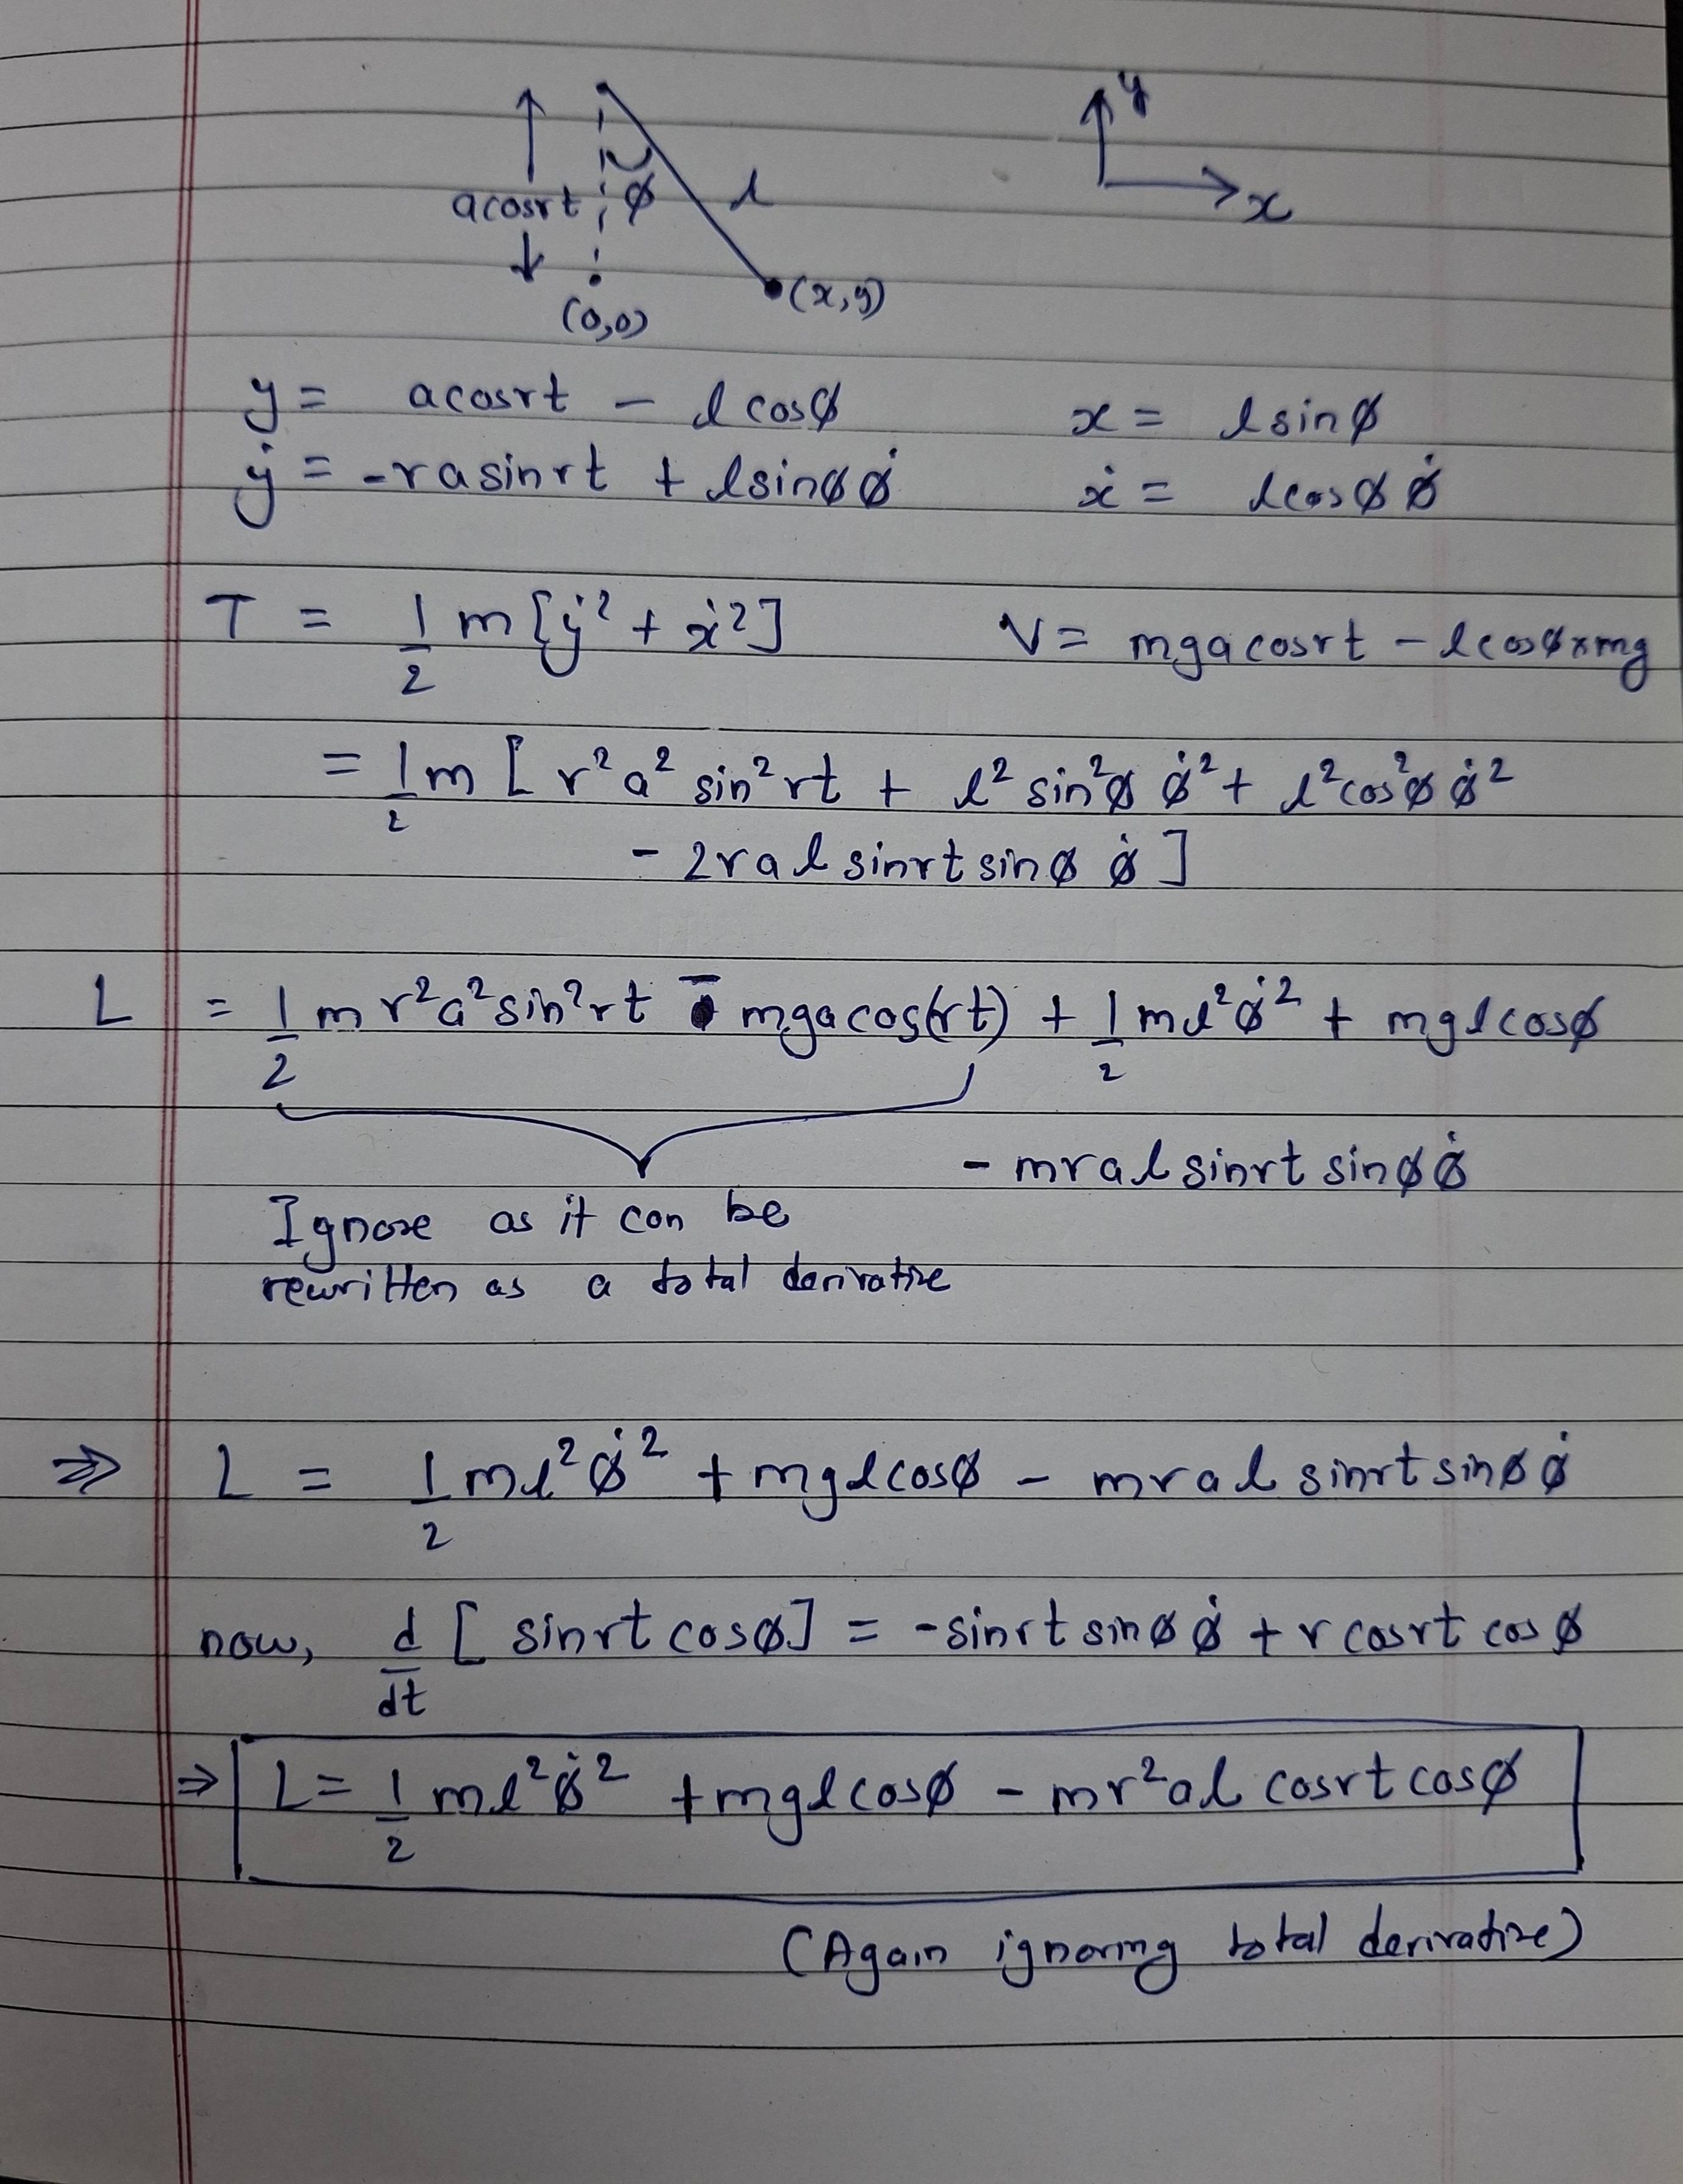 y
x
acosrt
ϕ
l
(x,y)
(0,0)
y = acosrt - l cosϕ    x = l sinϕ
ẏ = -rasinrt + lsinϕ ϕ̇    ẋ = lcosϕ ϕ̇
T = 1/2 m[ẏ² + ẋ²]    V = mgacosrt - lcosϕ×mg
= 1/2 m [ r²a² sin²rt + l² sin²ϕ ϕ̇² + l²cos²ϕ ϕ̇²
- 2ral sinrt sinϕ ϕ̇ ]
L = 1/2 mr²a²sin²rt - mgacos(rt) + 1/2 ml²ϕ̇² + mglcosϕ
- mral sinrt sinϕ ϕ̇
Ignore as it can be
rewritten as a total derivative
⇒ L = 1/2 ml²ϕ̇² + mglcosϕ - mral sinrt sinϕ ϕ̇
now, d/dt [ sinrt cosϕ] = -sinrt sinϕ ϕ̇ + r cosrt cosϕ
⇒ L = 1/2 ml²ϕ̇² + mglcosϕ - mr²al cosrt cosϕ
(Again ignoring total derivative)